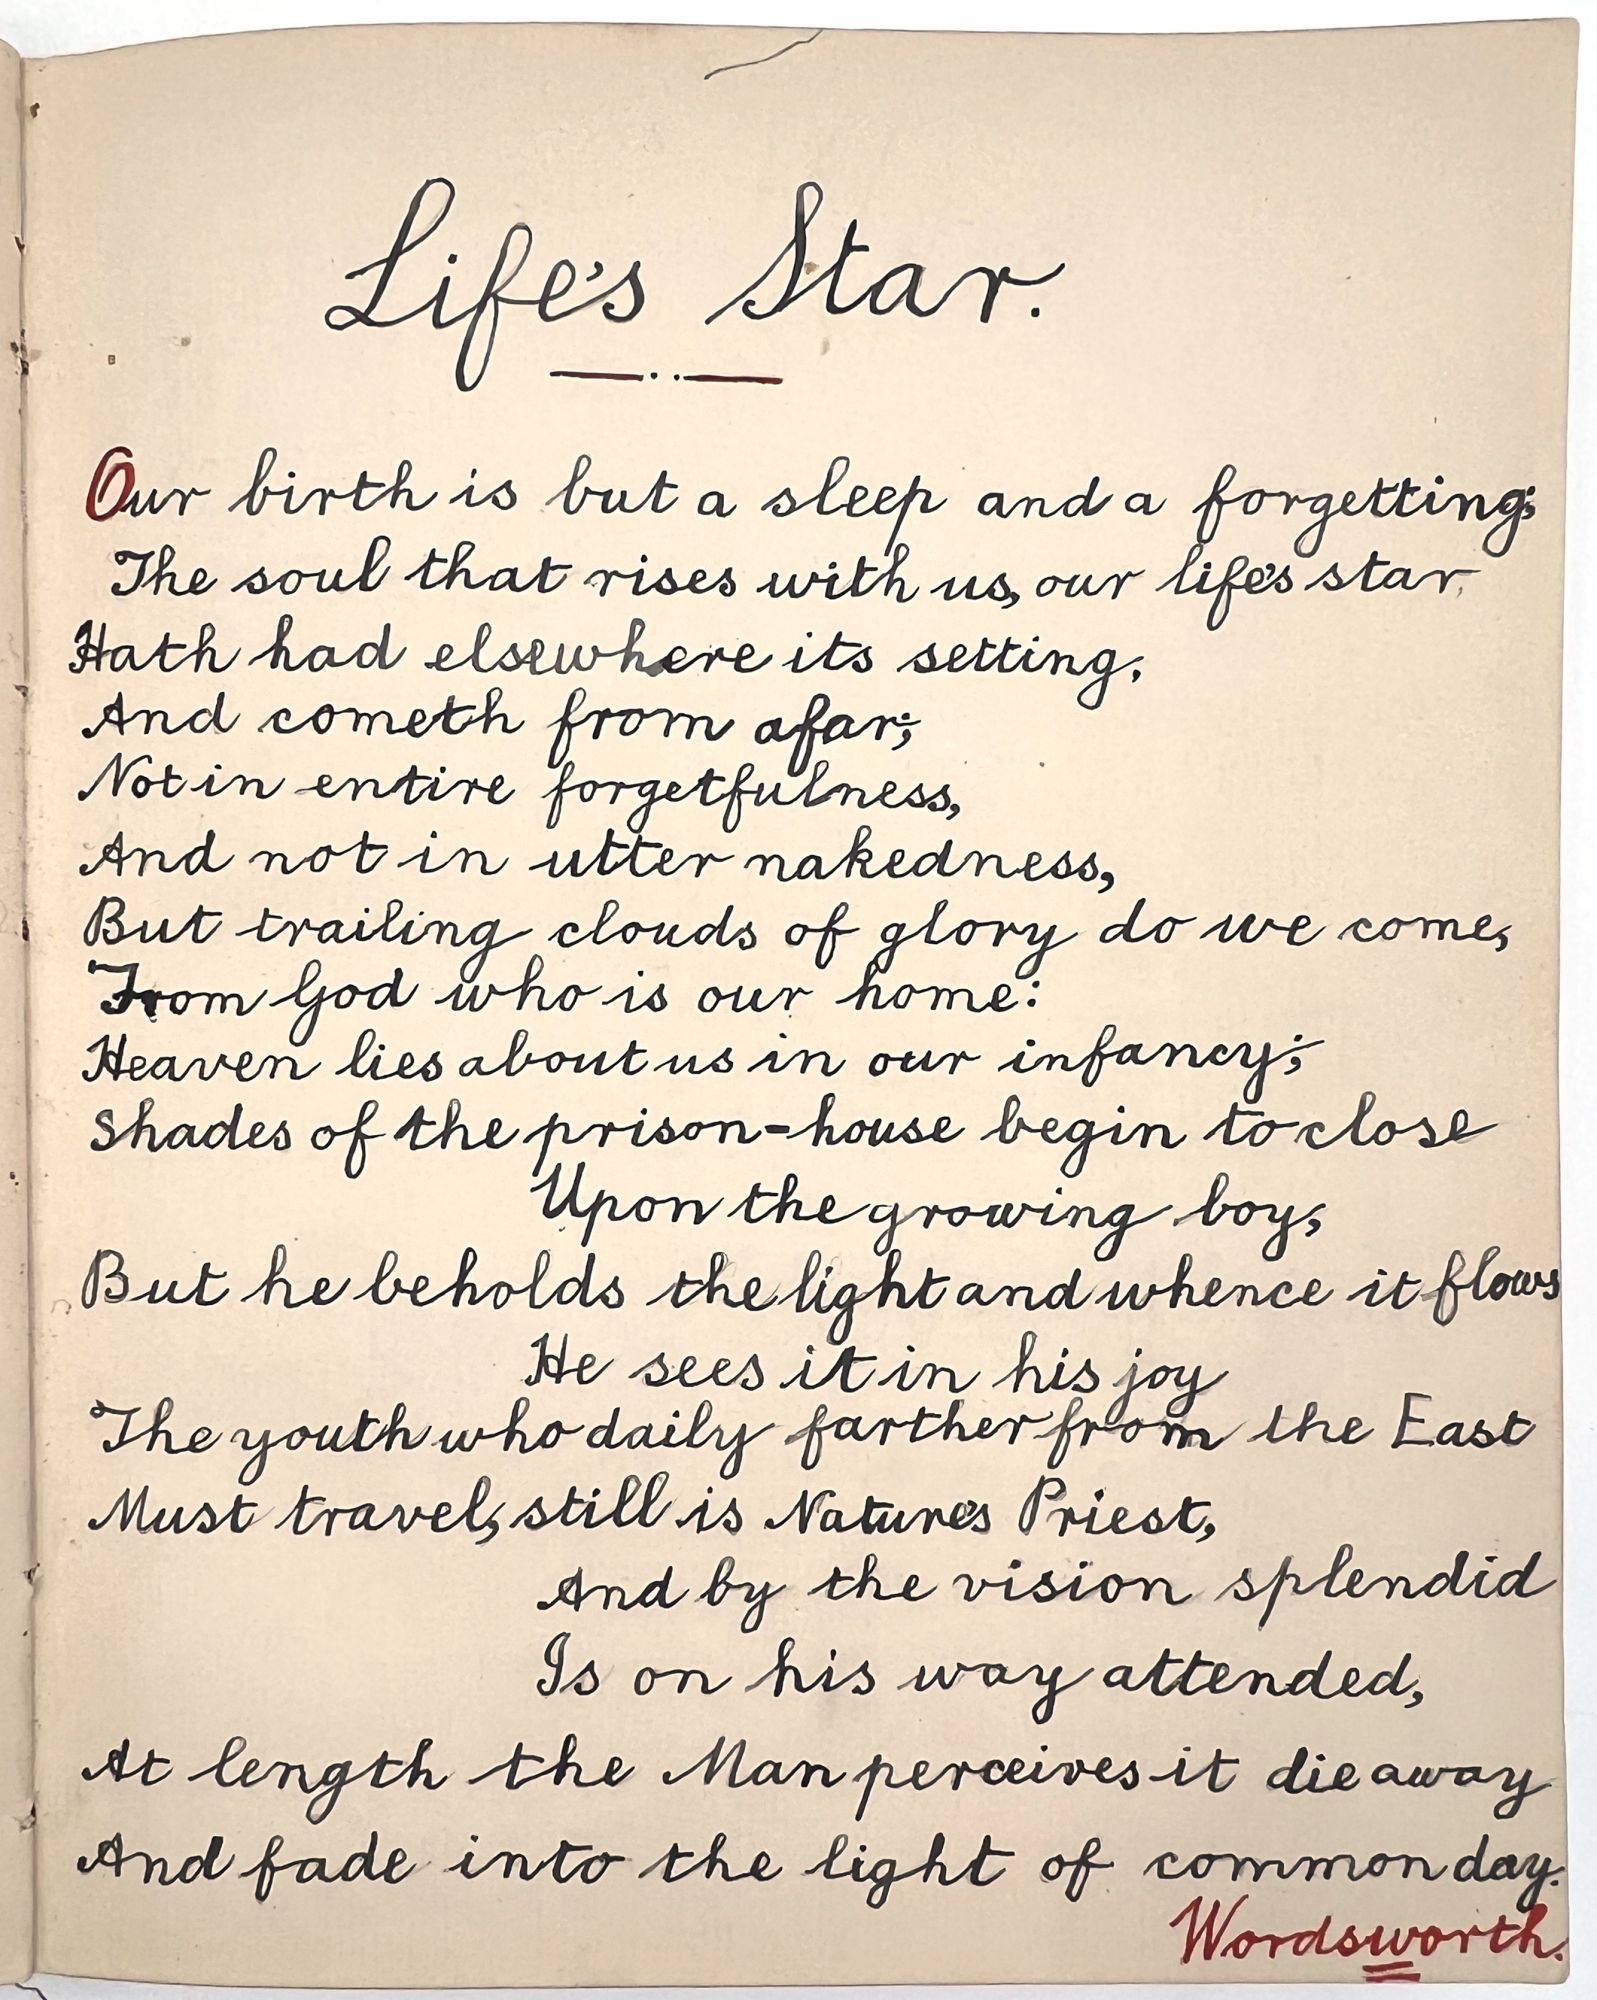 Life's Star.
Our birth is but a sleep and a forgetting;
The soul that rises with us, our life's star,
Hath had elsewhere its setting,
And cometh from afar;
Not in entire forgetfulness,
And not in utter nakedness,
But trailing clouds of glory do we come,
From God who is our home:
Heaven lies about us in our infancy;
Shades of the prison-house begin to close
Upon the growing boy,
But he beholds the light and whence it flows
He sees it in his joy
The youth who daily farther from the East
Must travel, still is Nature's Priest,
And by the vision splendid
Is on his way attended,
At length the Man perceives it die away
And fade into the light of common day.
Wordsworth.